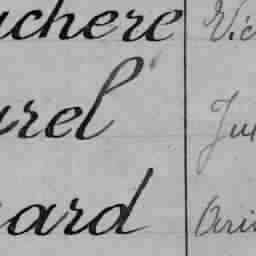 uchere Vic
urel Jul
nard Ari